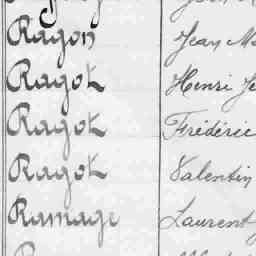 Ragon Jean
Ragot Henri
Ragot Frédéric
Ragot Valentin
Ramage Laurent